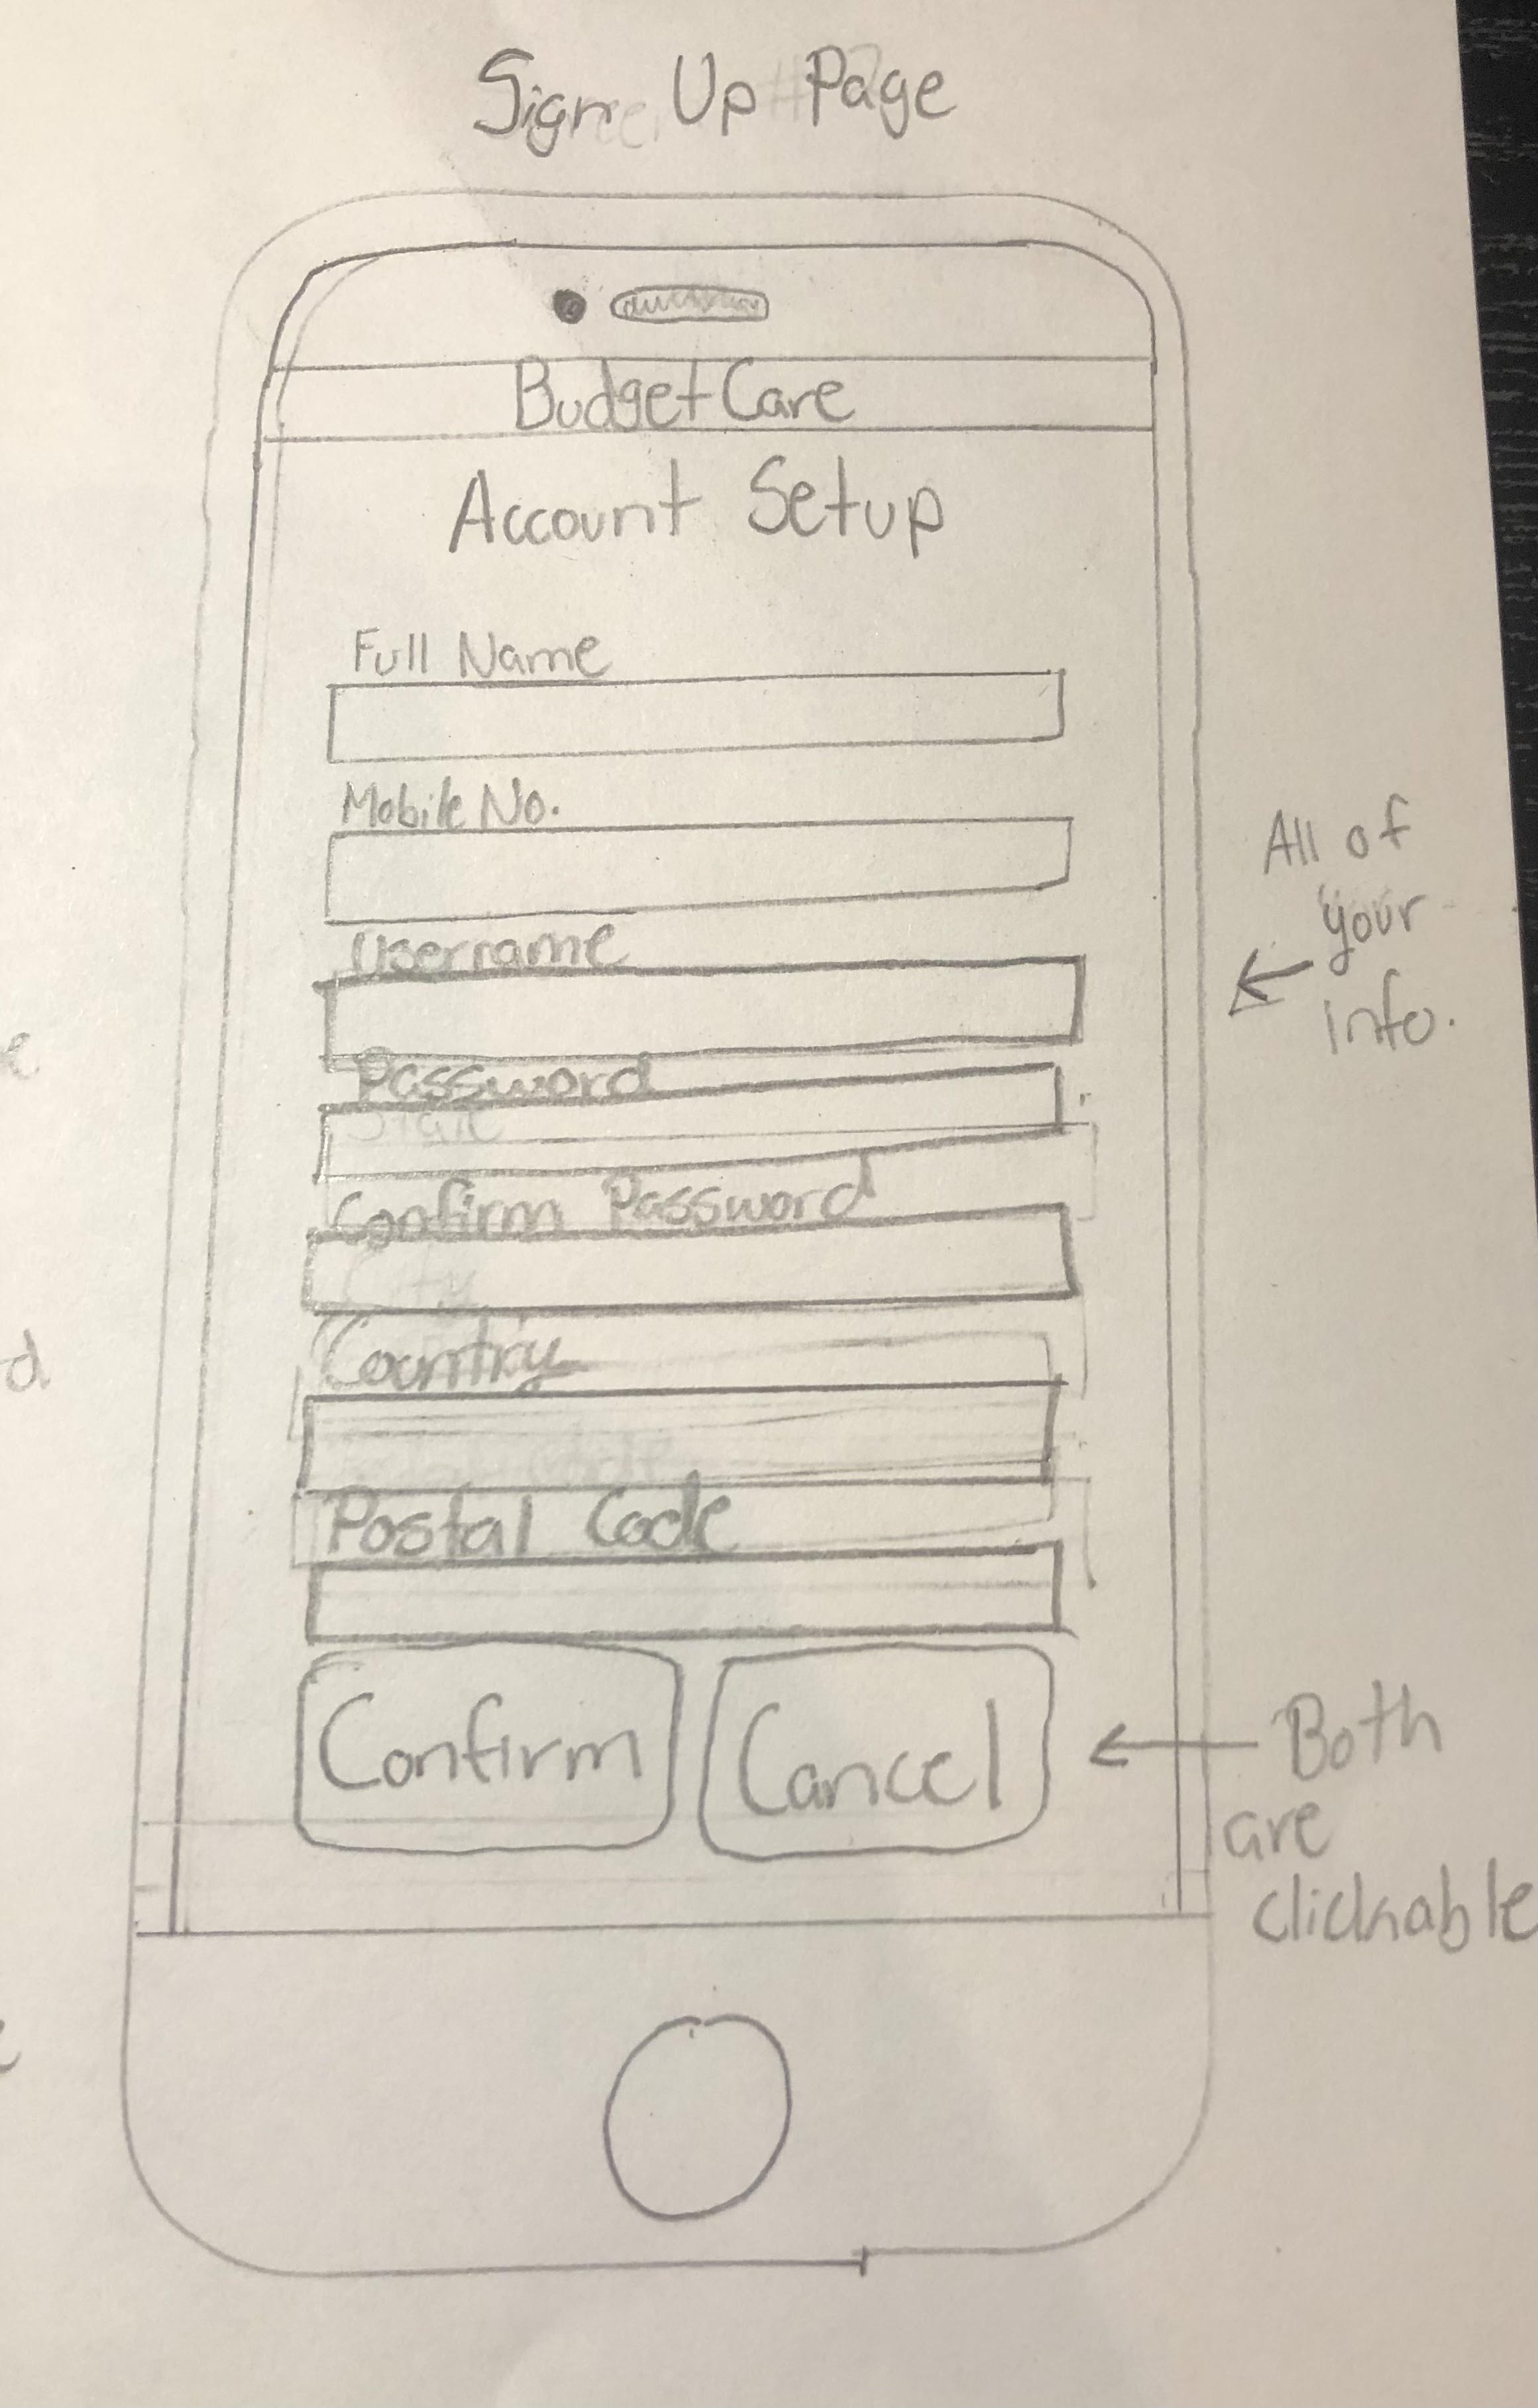 Sign Up Page
BudgetCare
Account Setup
Full Name
Mobile No.
Username
Password
State
Confirm Password
City
Country
Postal Code
Confirm
Cancel
All of
your
info.
Both
are
clickable